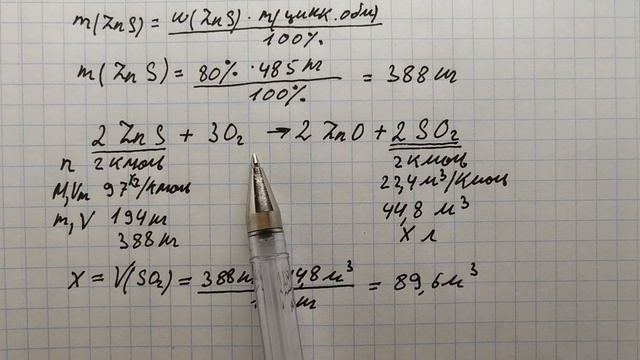 m(ZnS) = w(ZnS) · m(цинк. обм) / 100%
m(ZnS) = 80% · 485 кг / 100% = 388 кг
2 ZnS + 3O₂ → 2 ZnO + 2 SO₂
n 2 кмоль 2 кмоль
M, Vm 97 кг/кмоль 22,4 м³/кмоль
m, V 194 кг 44,8 м³
388 кг X л
X = V(SO₂) = 388 4,8 м³ / кг = 89,6 м³